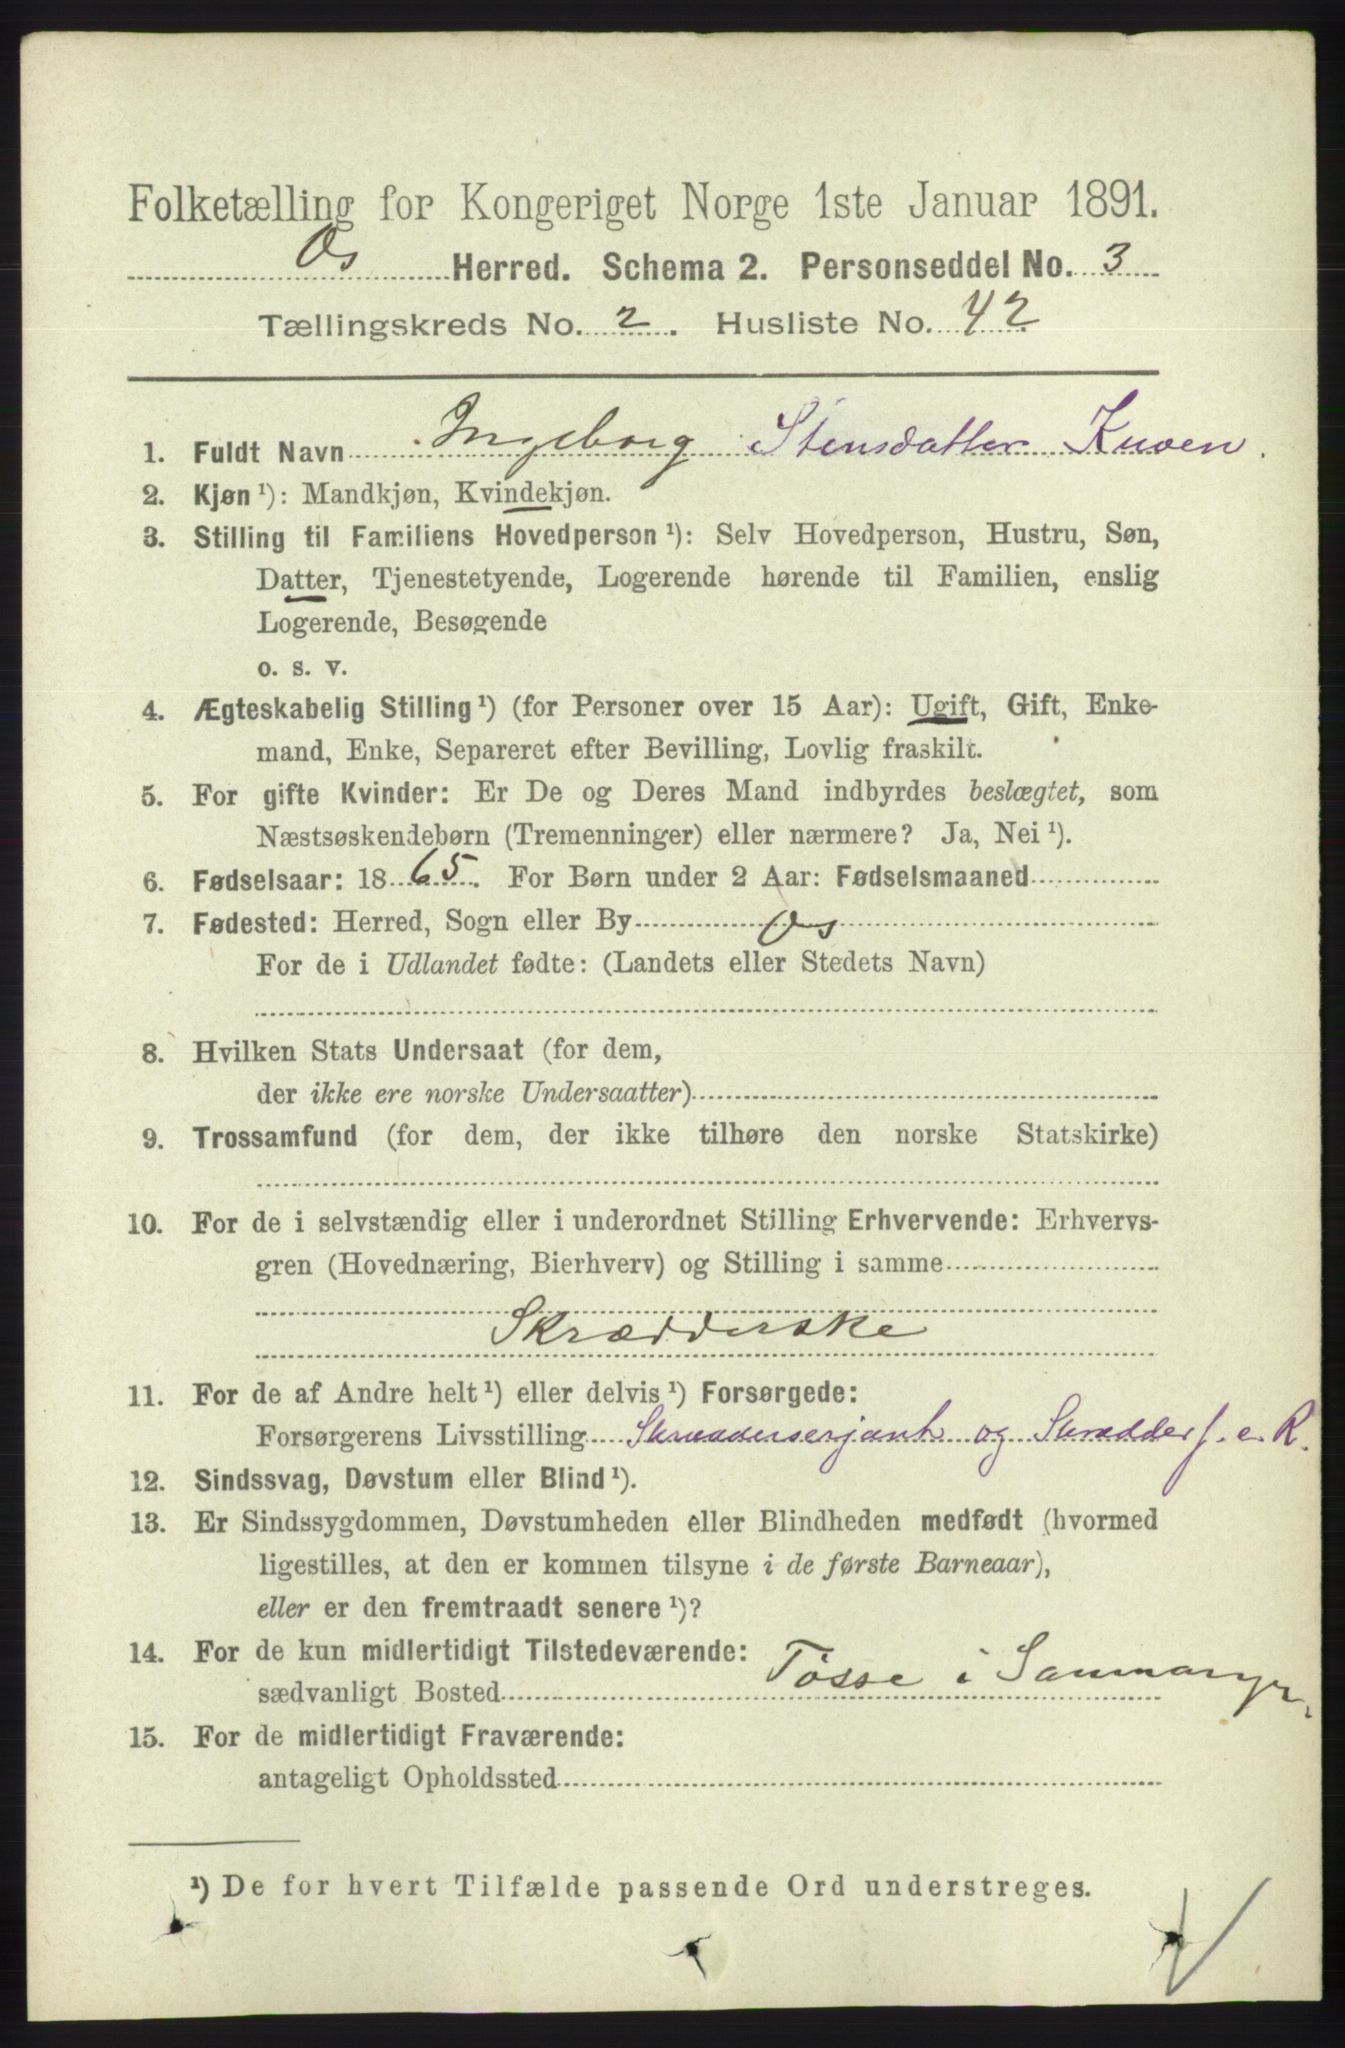 Folketælling for Kongeriget Norge 1ste Januar 1891.
Os Herred. Schema 2. Personseddel No. 3
Tællingskreds No. 2. Husliste No. 42
1. Fuldt Navn Ingeborg Stensdatter Kuven.
2. Kjøn ¹): Mandkjøn, Kvindekjøn.
3. Stilling til Familiens Hovedperson ¹): Selv Hovedperson, Hustru, Søn,
Datter, Tjenestetyende, Logerende hørende til Familien, enslig
Logerende, Besøgende
o. s. v.
4. Ægteskabelig Stilling ¹) (for Personer over 15 Aar): Ugift, Gift, Enke-
mand, Enke, Separeret efter Bevilling, Lovlig fraskilt.
5. For gifte Kvinder: Er De og Deres Mand indbyrdes beslægtet, som
Næstsøskendebørn (Tremenninger) eller nærmere? Ja, Nei ¹).
6. Fødselsaar: 1865. For Børn under 2 Aar: Fødselsmaaned
7. Fødested: Herred, Sogn eller By Os
For de i Udlandet fødte: (Landets eller Stedets Navn)
8. Hvilken Stats Undersaat (for dem,
der ikke ere norske Undersaatter)
9. Trossamfund (for dem, der ikke tilhøre den norske Statskirke)
10. For de i selvstændig eller i underordnet Stilling Erhvervende: Erhvervs-
gren (Hovednæring, Bierhverv) og Stilling i samme
Skrædderske
11. For de af Andre helt ¹) eller delvis ¹) Forsørgede:
Forsørgerens Livsstilling og Skrædder f. e. R.
12. Sindssvag, Døvstum eller Blind ¹).
13. Er Sindssygdommen, Døvstumheden eller Blindheden medfødt (hvormed
ligestilles, at den er kommen tilsyne i de første Barneaar),
eller er den fremtraadt senere ¹)?
14. For de kun midlertidigt Tilstedeværende:
sædvanligt Bosted Tösse i
15. For de midlertidigt Fraværende:
antageligt Opholdssted
¹) De for hvert Tilfælde passende Ord understreges.